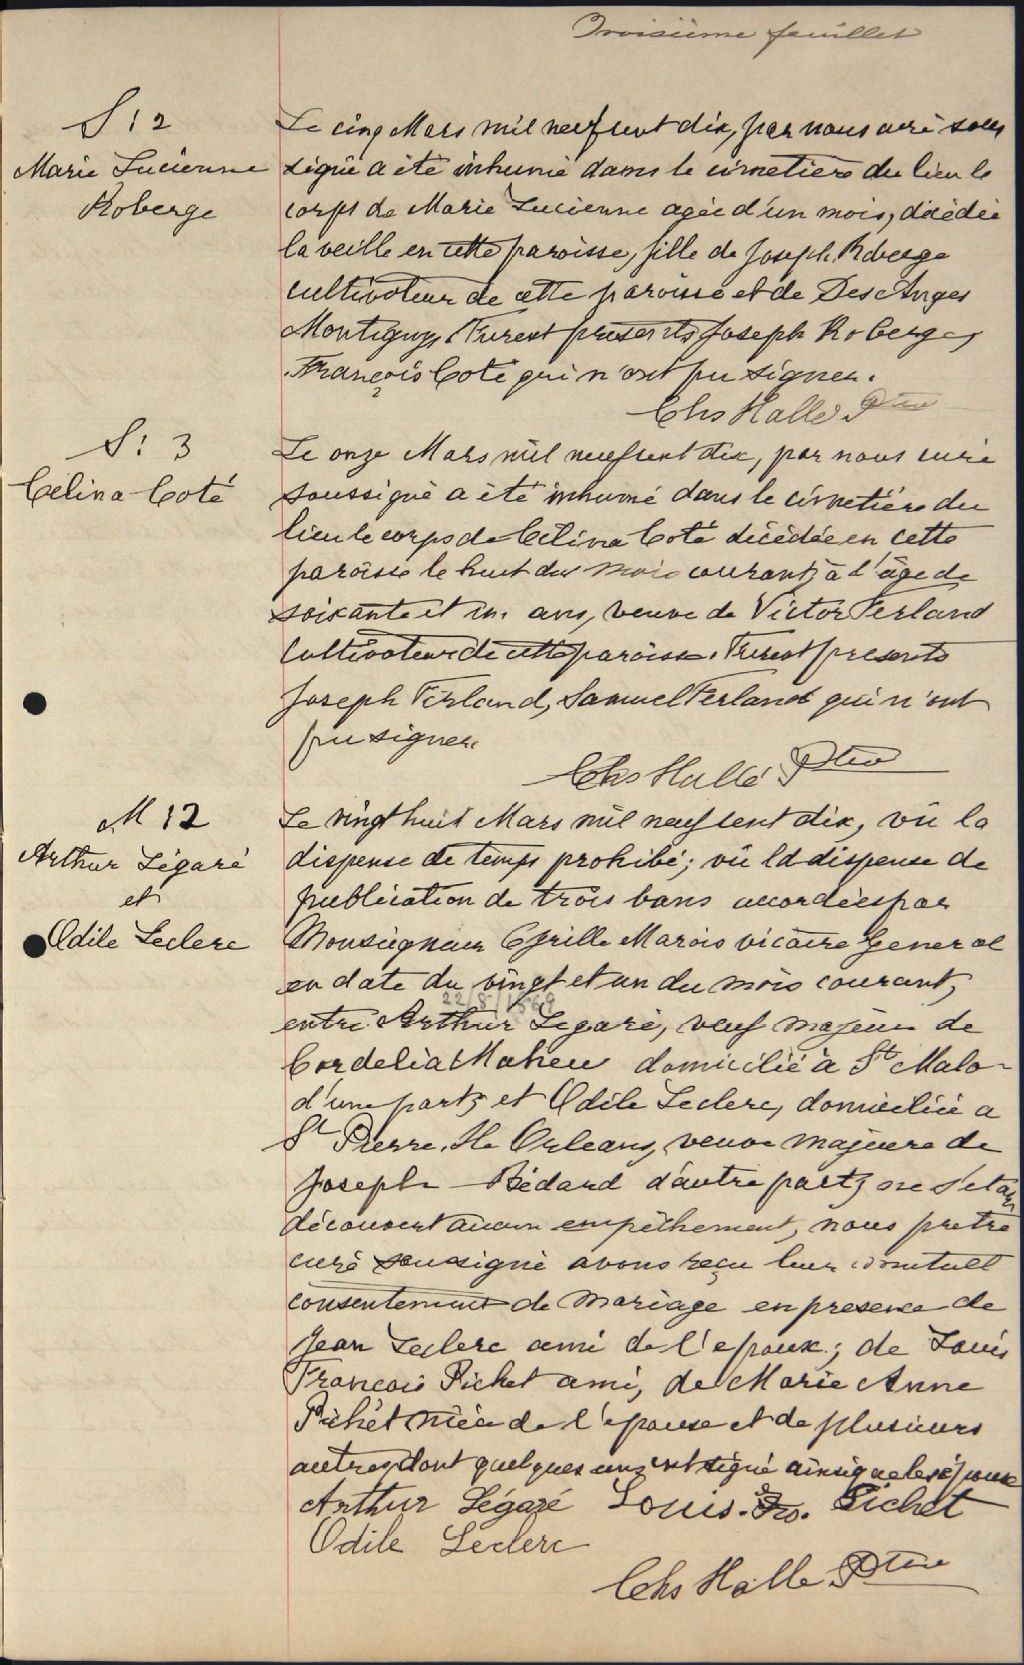 Troisième feuillet
S: 2
Marie Lucienne
Roberge
Le cinq Mars mil neuf cent dix, par nous curé sous
signé a été inhumé dans le cimetière du lieu le
corps de Marie Lucienne agée d'un mois, décédée
la veille en cette paroisse, fille de Joseph Roberge
cultivateur de cette paroisse et de Des Anges
Montigny, Furent présents Joseph Roberge,
François Coté qui n'ont pu signer.
Chs Hallé Ptre
S: 3
Célina Coté
Le onze Mars mil neuf cent dix, par nous curé
soussigné a été inhumé dans le cimetière du
lieu le corps de Célina Coté décédée en cette
paroisse le huit du mois courant, à l'âge de
soixante et un ans, veuve de Victor Ferland
Cultivateur de cette paroisse. Furent présents
Joseph Ferland, Samuel Ferland qui n'ont
pu signer.
Chs Hallé Ptre
M 12
Arthur Légaré
et
Odile Leclerc
Le vingt huit Mars mil neuf cent dix, vû la
dispense de temps prohibé; vû la dispense de
publication de trois bans accordées par
Monseigneur Cyrille Marois vicaire General
en date du vingt et un du mois courant,
22/8/1869
entre Arthur Legaré, veuf majeur de
Cordelia Maheu domicilié à St Malo
d'une part, et Odile Leclerc, domiciliée a
St Pierre, Ile Orleans, veuve majeure de
Joseph Bédard d'autre part, ne s'étant
découvert aucun empêchement, nous prêtre
curé soussigné avons reçu leur mutuel
consentement de mariage en presence de
Jean Leclerc ami de l'epoux; de Louis
François Pichet ami, de Marie Anne
Pichet nièce de l'épouse et de plusieurs
autres dont quelques uns ont signé ainsi que les époux
Arthur Légaré Louis. Frs. Pichet
Odile Leclerc
Chs Hallé Ptre